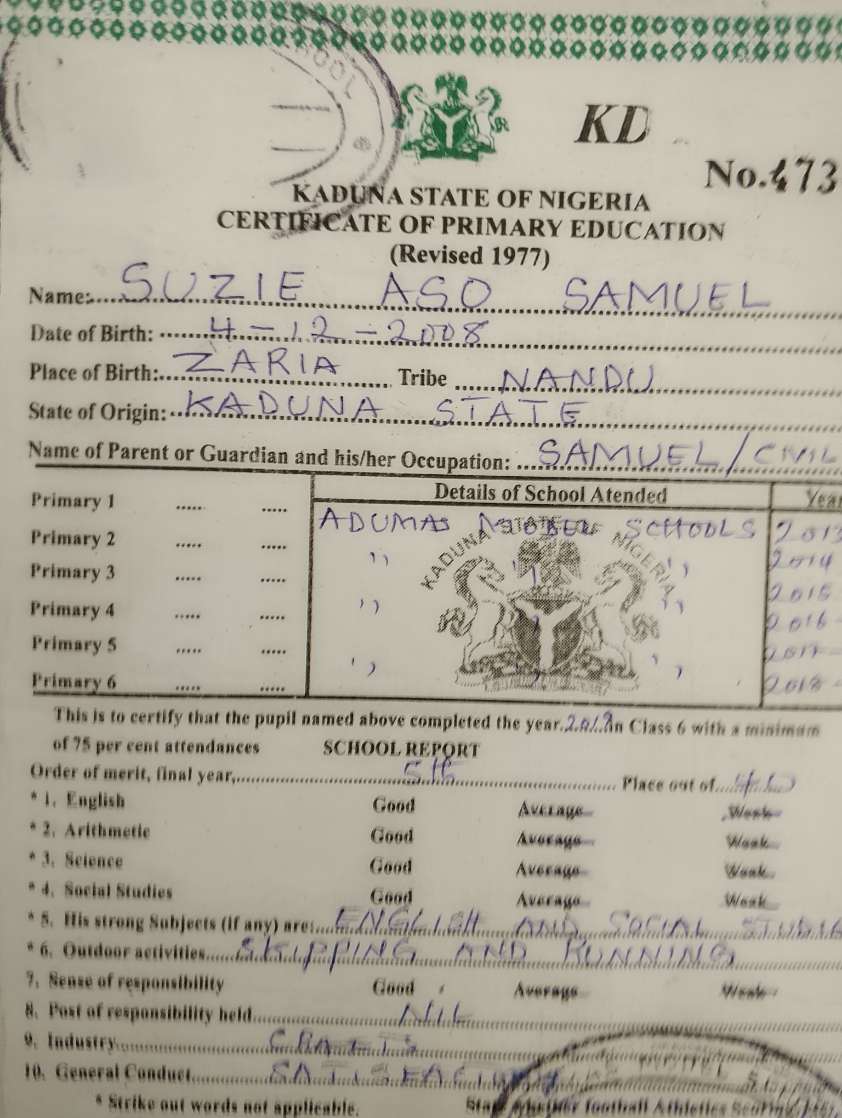 KD
No.473
KADUNA STATE OF NIGERIA
CERTIFICATE OF PRIMARY EDUCATION
(Revised 1977)
Name:..... SUZIE ASO SAMUEL
Date of Birth: ..... 4-12-2008
Place of Birth:..... ZARIA ..... Tribe ..... NANDU
State of Origin:.. KADUNA STATE
Name of Parent or Guardian and his/her Occupation: ..... SAMUEL/CIVIL
Details of School Atended Year
Primary 1 ..... ..... ADUMAS MODEL SCHOOLS 2013
Primary 2 ..... ..... ,, ,, 2014
Primary 3 ..... ..... ,, ,, 2015
Primary 4 ..... ..... ,, ,, 2016
Primary 5 ..... ..... 2017
Primary 6 ..... ..... ,, ,, 2018
KADUNA STATE OF NIGERIA
This is to certify that the pupil named above completed the year in Class 6 with a minimum
of 75 per cent attendances SCHOOL REPORT
Order of merit, final year,..... Place out of.....
* 1. English Good Average Weak
* 2. Arithmetic Good Average Weak
* 3. Science Good Average Weak
* 4. Social Studies Good Average Weak
* 5. His strong Subjects (if any) are:..... ENGLISH AND SOCIAL STUDIE
* 6. Outdoor activities..... SKIPPING AND RUNNING
7. Sense of responsibility Good Average Weak
8. Post of responsibility held..... NIL
9. Industry..... CRAFTS
10. General Conduct..... SATISFACTORY
* Strike out words not applicable. State whether football Athletics